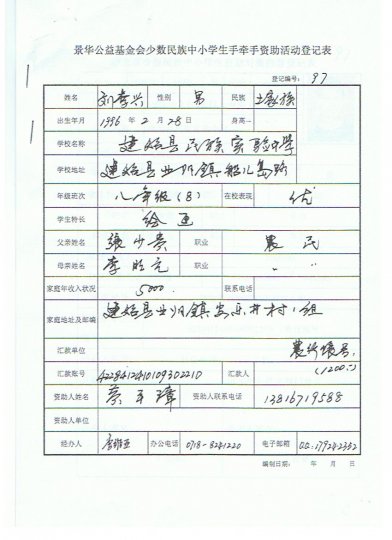 景华公益基金会少数民族中小学生手牵手资助活动登记表
登记编号： 97
姓名 刘孝兴 性别 男 民族 土家族
出生年月 1996 年 2 月 28 日 身高
学校名称 建始县民族实验中学
学校地址 建始县业州镇船儿岛路
年级班次 八年级（8） 在校表现 优
学生特长 绘画
父亲姓名 张 贵 职业 农民
母亲姓名 李 元 职业 〃 〃
家庭年收入状况 5000. 联系电话
家庭地址及邮编 建始县业州镇 乐井村 组
汇款单位 农行账号：
汇款账号 4228412410109302210 汇款人 (1200:)
资助人姓名 资助人联系电话 13816719588
资助人单位
经办人 办公电话 0718-8241220 电子邮箱 QQ:17924-2352
编制日期： 年 月 日